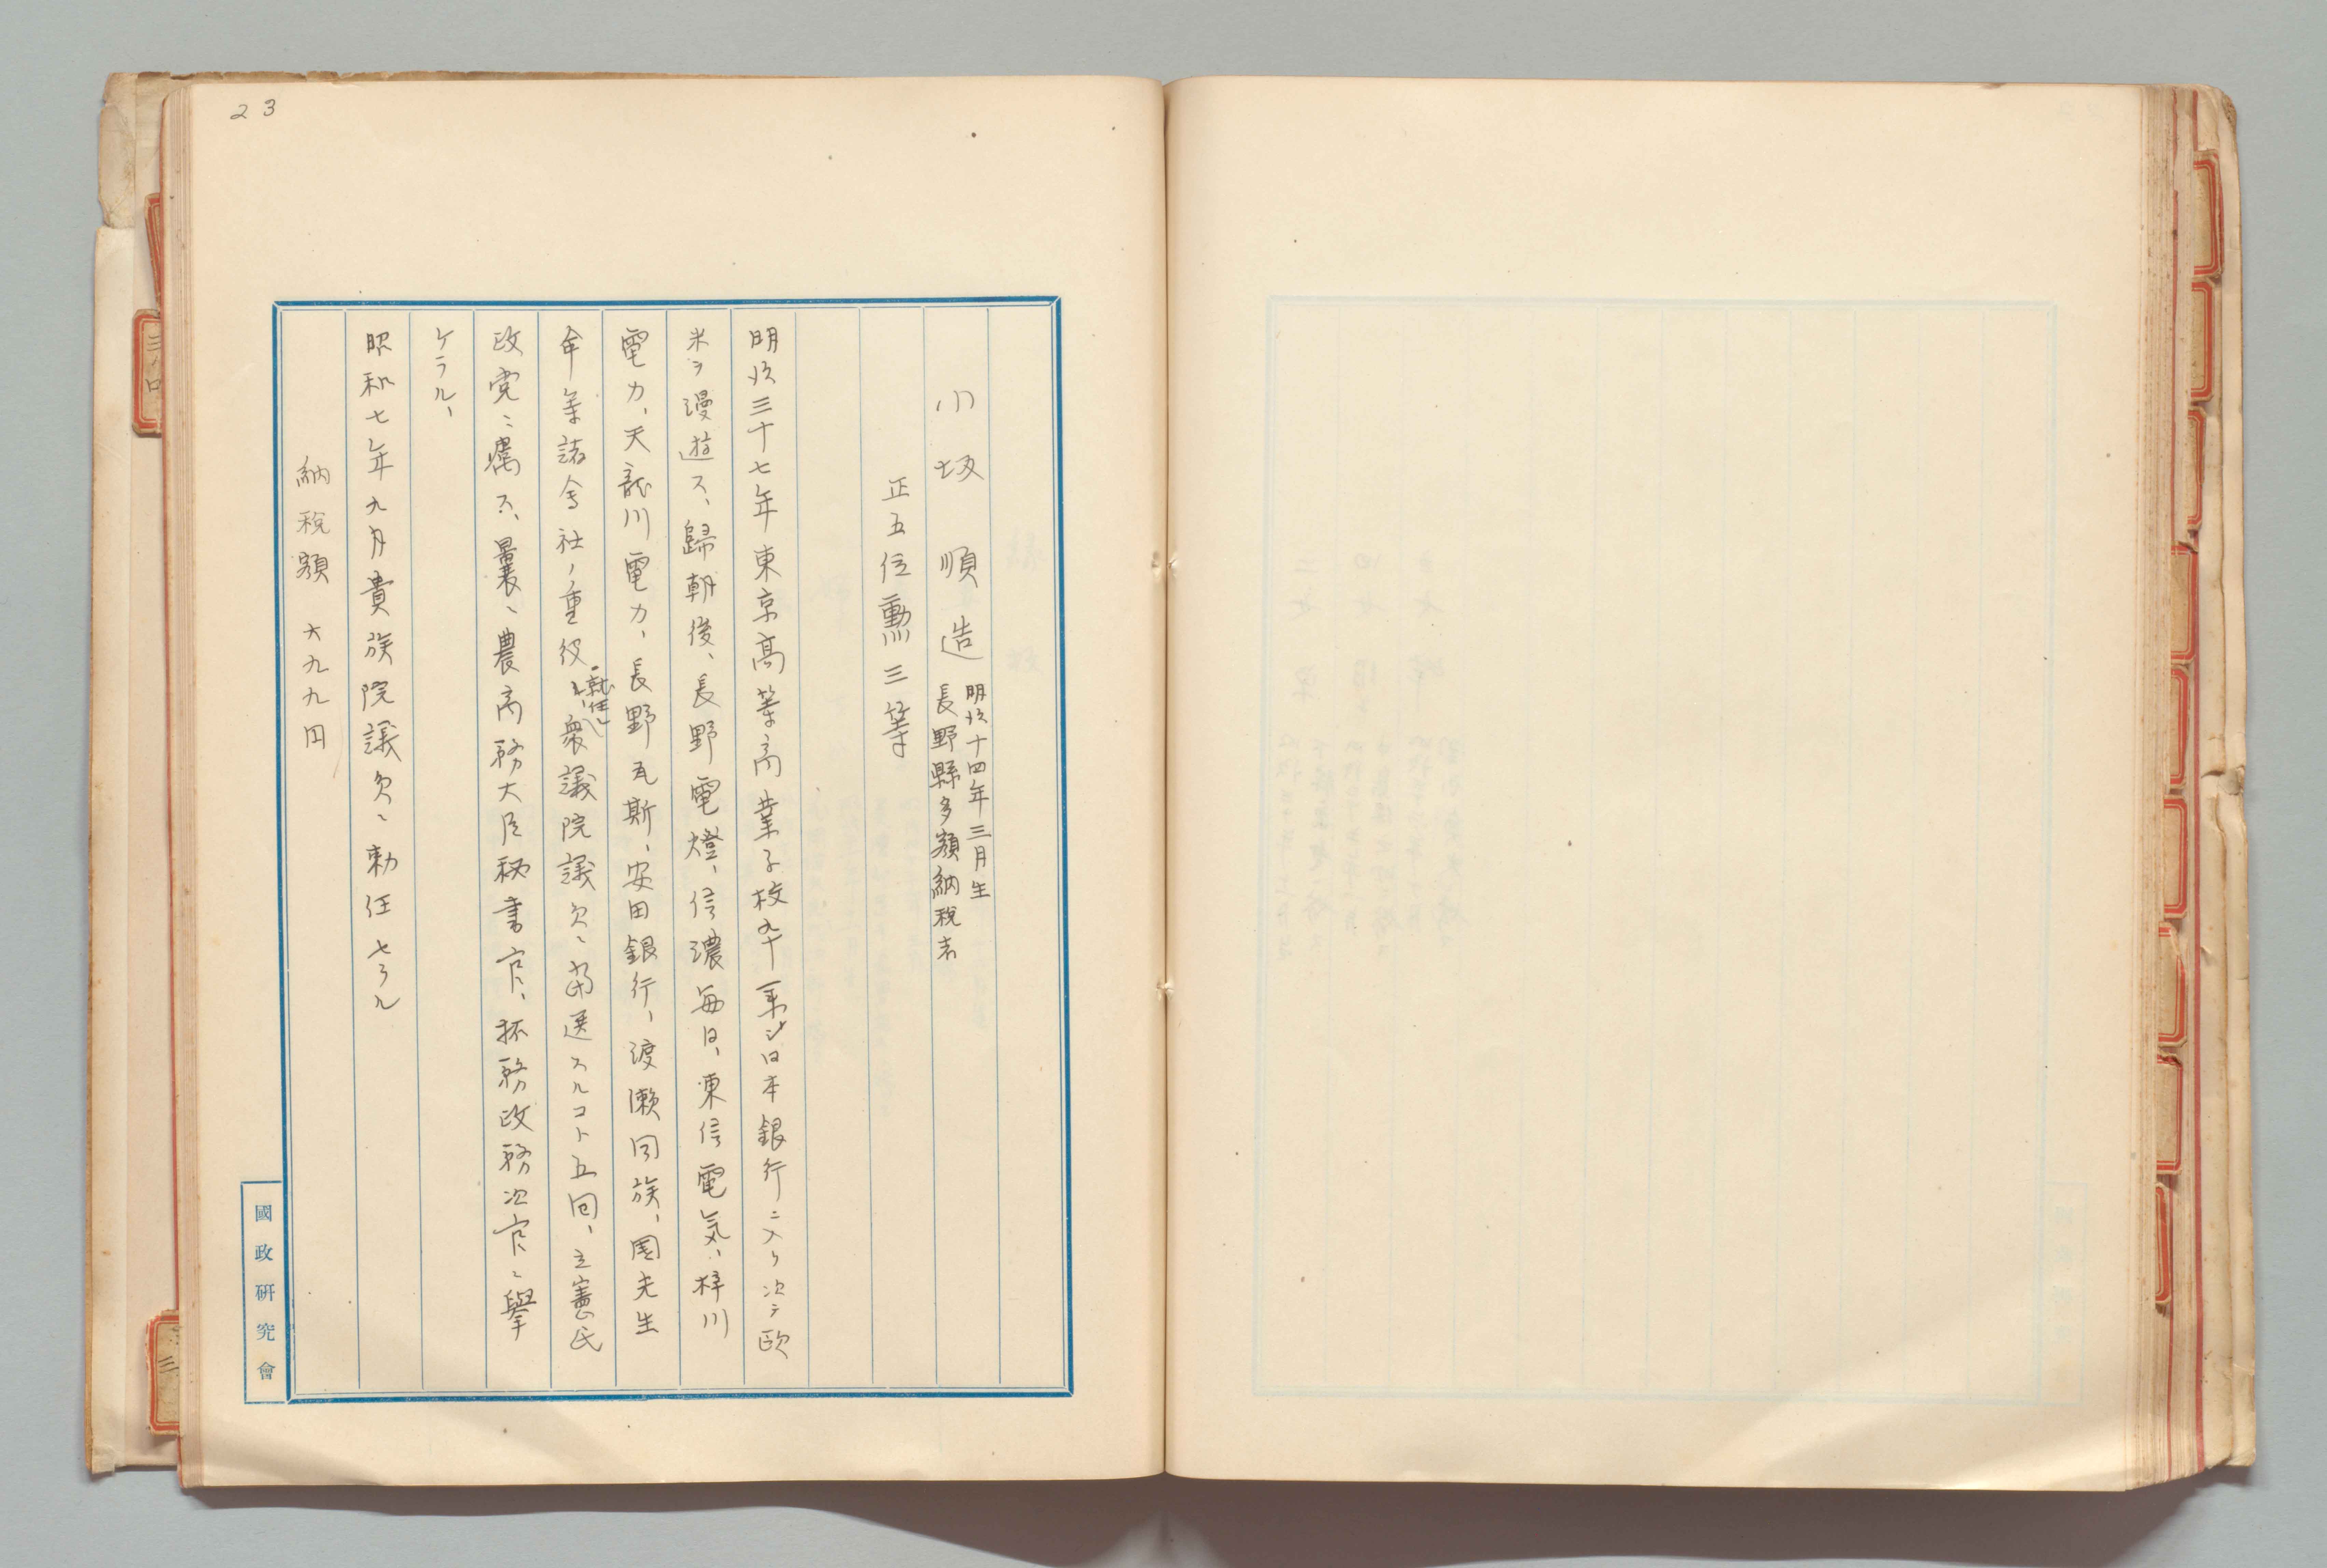 23
小坂順造
明治十四年三月生
長野縣多額納税者
正五位勲三等
明治三十七年東京高等商業学校ヲ卒業シ日本銀行ニ入リ次テ欧
米ヲ漫遊ス、歸朝後、長野電燈、信濃毎日、東信電気、梓川
電力、天龍川電力、長野瓦斯、安田銀行、渡瀬同族、園先生
命等諸会社ノ重役
ニ就任シ
衆議院議員ニ当選スルコト五回、立憲民
政党ニ属ス、曩ニ農商務大臣秘書官、拓務政務次官ニ擧
ケラル、
昭和七年九月貴族院議員ニ勅任セラル
納税額 六九九円
國政研究會